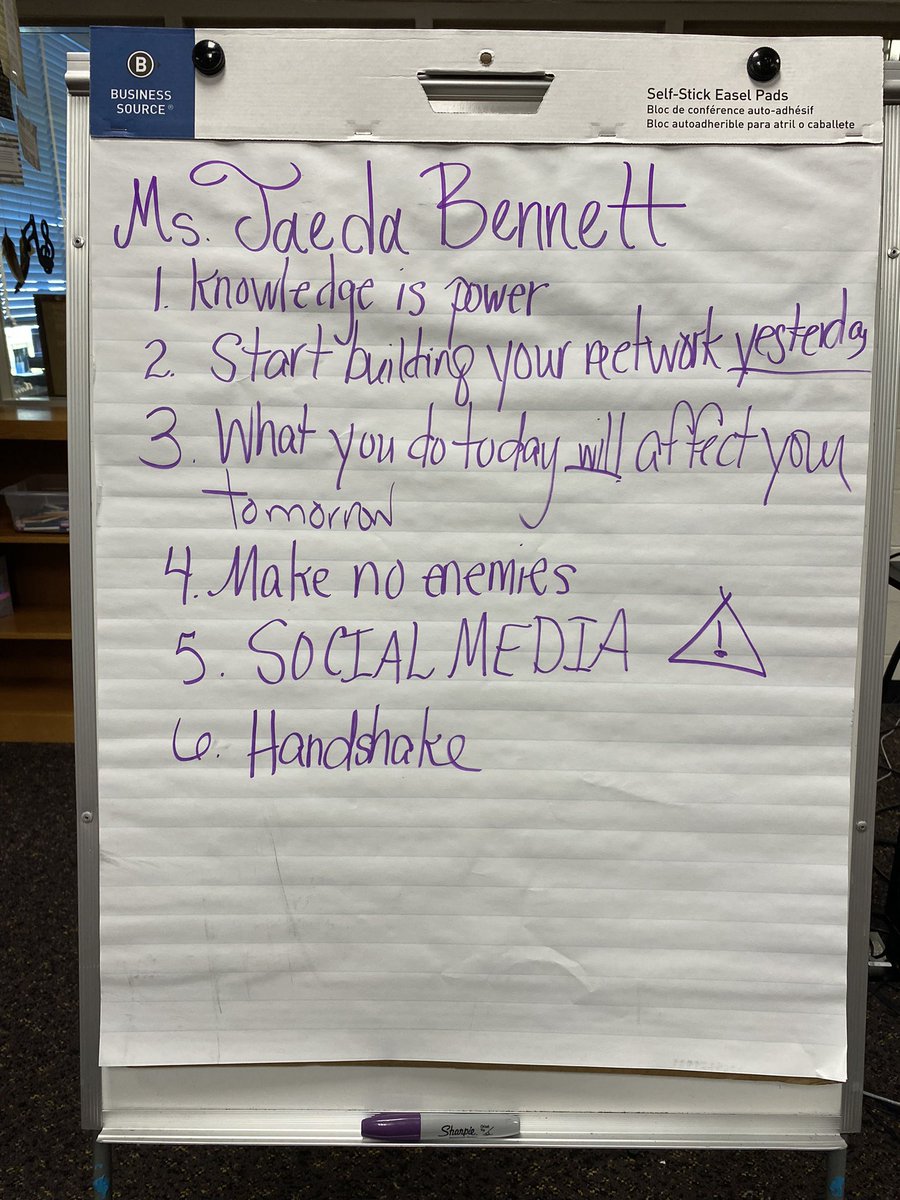 B
BUSINESS
SOURCE®
Self-Stick Easel Pads
Bloc de conférence auto-adhésif
Bloc autoadherible para atril o caballete
Ms. Jaeda Bennett
1. Knowledge is power
2. Start building your network yesterday
3. What you do today will affect your
tomorrow
4. Make no enemies
5. SOCIAL MEDIA !
6. Handshake
Sharpie